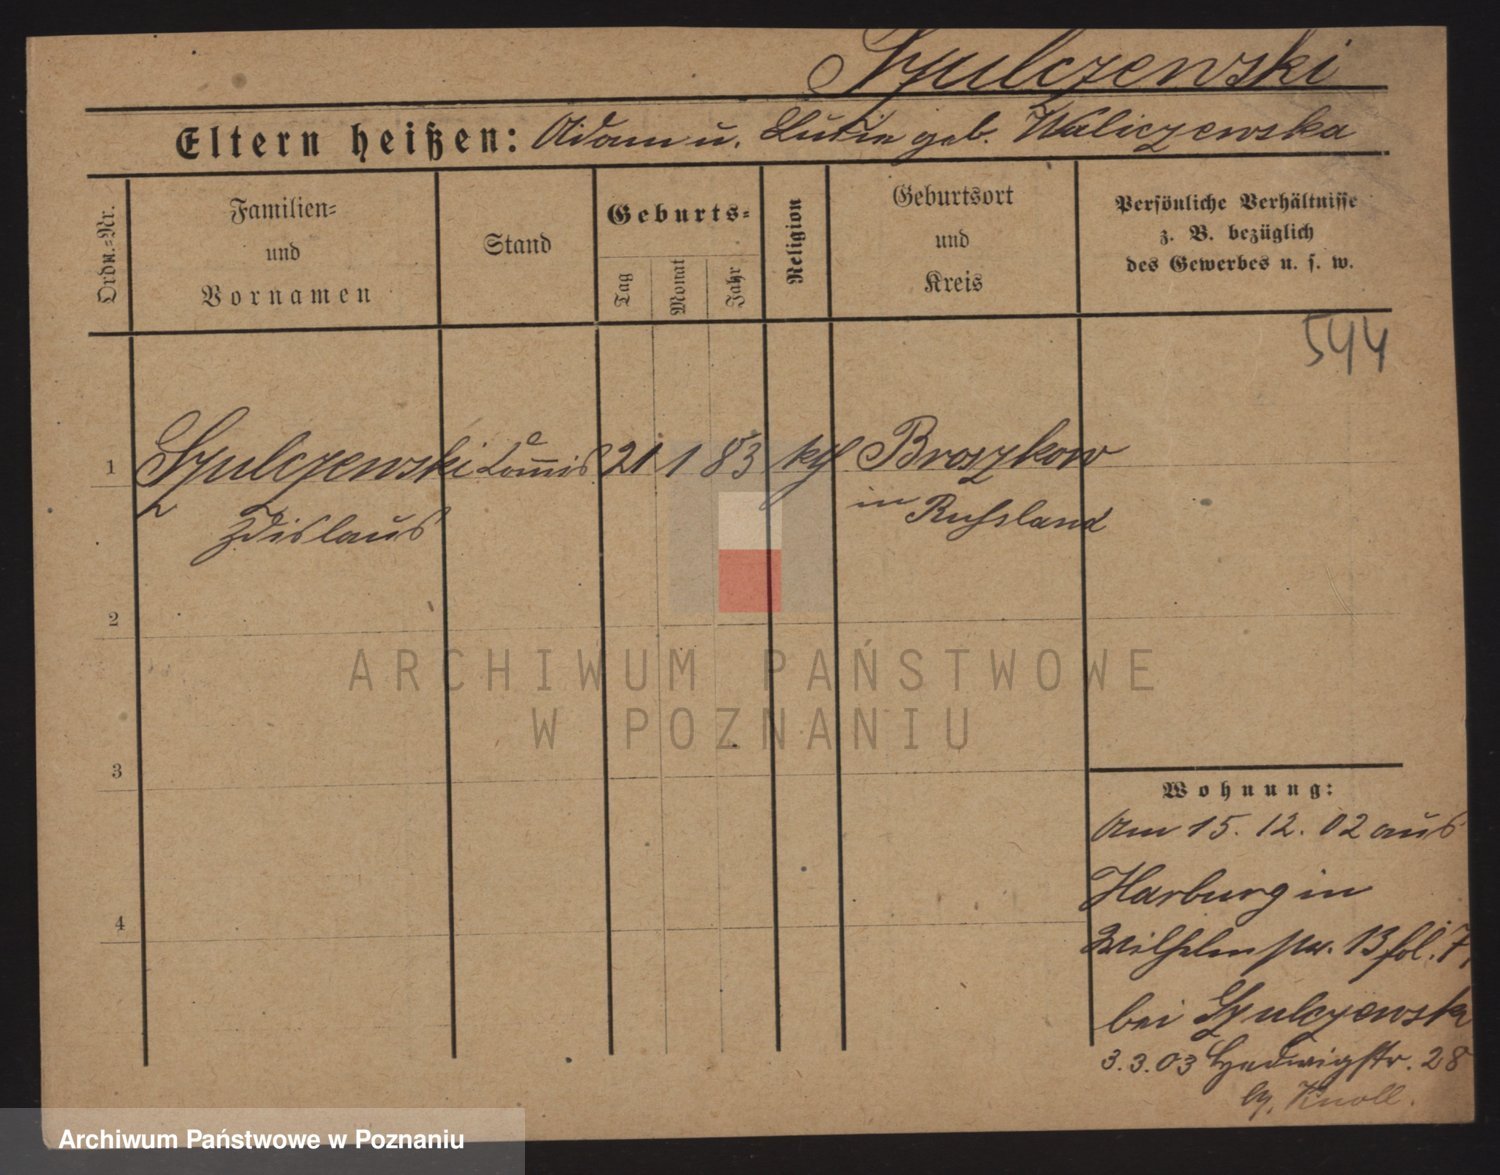 Szulczewski
Eltern heißen: Adam u. Lucie geb. Waliczewska
Ordn.=Nr.
Familien= und Vornamen
Stand
Geburts=
Tag
Monat
Jahr
Religion
Geburtsort und Kreis
Persönliche Verhältnisse z. B. bezüglich des Gewerbes u. s. w.
544
1 Szulczewski Commis 21 1 83 kth Broszkow
Zdislaus
in Russland
2
3
4
Wohnung:
Am 15. 12. 02 aus
Harburg in
Wilhelmstr. 13 fol. 7,
bei Szulczewska
3.3.03 Hedwigstr. 28
Knoll.
ARCHIWUM PAŃSTWOWE
W POZNANIU
Archiwum Państwowe w Poznaniu